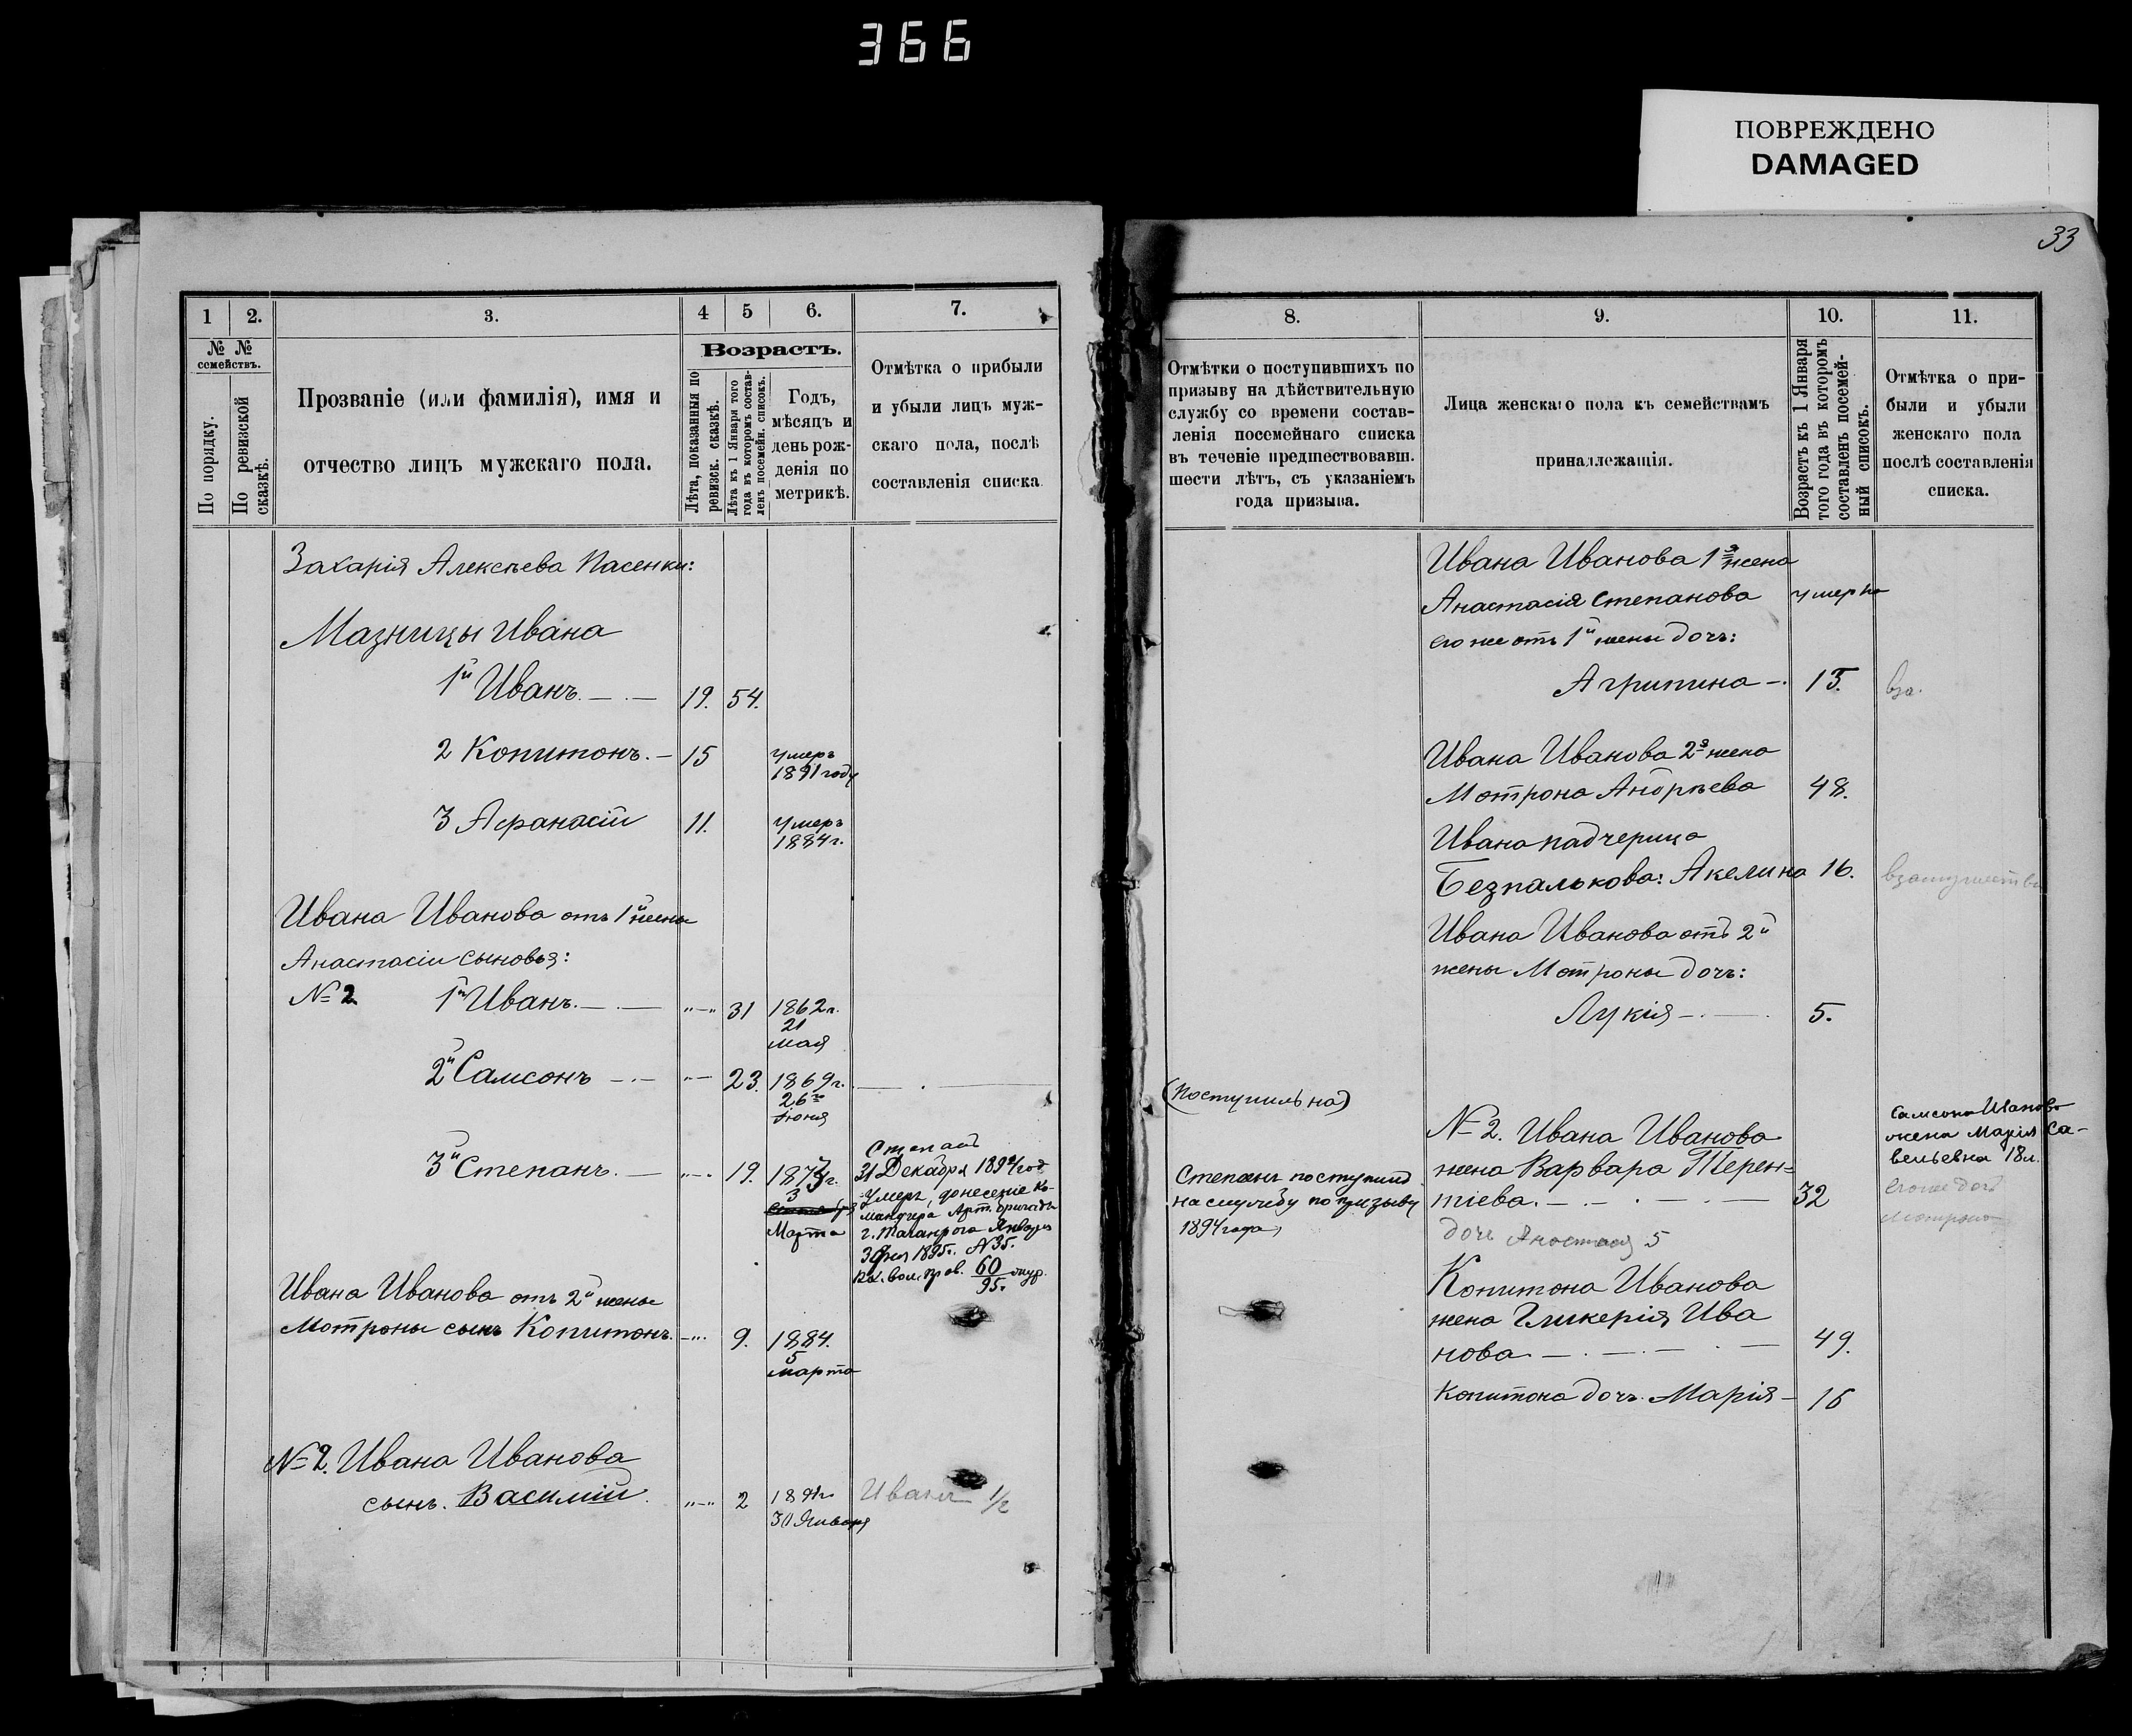 366
ПОВРЕЖДЕНО
DAMAGED
33
1
2.
3.
4
5
6.
7.
№ №
семействъ.
По порядку.
По ревизской
сказкѣ.
Прозваніе (или фамилія), имя и
отчество лицъ мужскаго пола.
Возрастъ.
Лѣта, показанныя по
ревизск. сказкѣ.
Лѣта къ 1 Января того
года въ которомъ состав-
ленъ посемейн. списокъ.
Годъ,
мѣсяцъ и
день рож-
денія по
метрикѣ.
Отмѣтка о прибыли
и убыли лицъ муж-
скаго пола, послѣ
составленія списка
Захарія Алексѣева Пасенки:
Мазницы Ивана
1й Иванъ. — . — 19. 54.
2 Копитонъ. — 15 умеръ
1891 году
3 Афанасій 11. умеръ
1884 г.
Ивана Иванова отъ 1й жены
Анастасіи сыновья:
№ 2 1й Иванъ. — . — „—„ 31 1862 г.
21
мая
2й Самсонъ — . — „— 23. 1869 г.
26го
Іюня
3й Степанъ. — „—. 19. 1873 г.
3
Марта
Степанъ
31 Декабря 1894 год
умеръ, донесеніе Ко-
мандира Арт. бригады
г. Таганрога Января
3 дня 1895 г. № 35.
вол. прав. 60/95. жур.
Ивана Иванова отъ 2й жены
Мотроны сынъ Копитонъ. —„. 9. 1884.
5
марта
№ 2. Ивана Иванова
сынъ. Василій. „—„ 2 1891 г
30 Января
Иванъ 1/2
8.
9.
10.
11.
Отмѣтки о поступившихъ по
призыву на дѣйствительную
службу со времени состав-
ленія посемейнаго списка
въ теченіе предшествовавш.
шести лѣтъ, съ указаніемъ
года призыва.
Лица женскаго пола къ семействамъ
принадлежащія.
Возрастъ къ 1 Января
того года въ которомъ
составленъ посемей-
ный списокъ.
Отмѣтка о при-
были и убыли
женскаго пола
послѣ составленія
списка.
Ивана Иванова 1я жена
Анастасія Степанова умерла
его же отъ 1й жены дочь:
Агрипина —. 13.
Ивана Иванова 2я жена
Мотрона Андрѣева 48.
Ивана падчерица
Безпалькова: Акелина 16. взамужестве
Ивана Иванова отъ 2й
жены Мотроны дочь:
Лукія — . — . 5.
(поступилъ на)
Степанъ поступилъ
на службу по призыву
1894 года,
№ 2. Ивана Иванова
жена Варвара Терен=
тіева. — . — . — . — 32
дочь Анастасія 5
Самсона Иванова
жена Марія Са-
вельевна 18 л.
его же доч
Мотрона
Копитона Иванова
жена Гликерія Ива
нова — . — . — . — 49.
Копитона дочь. Марія — 16